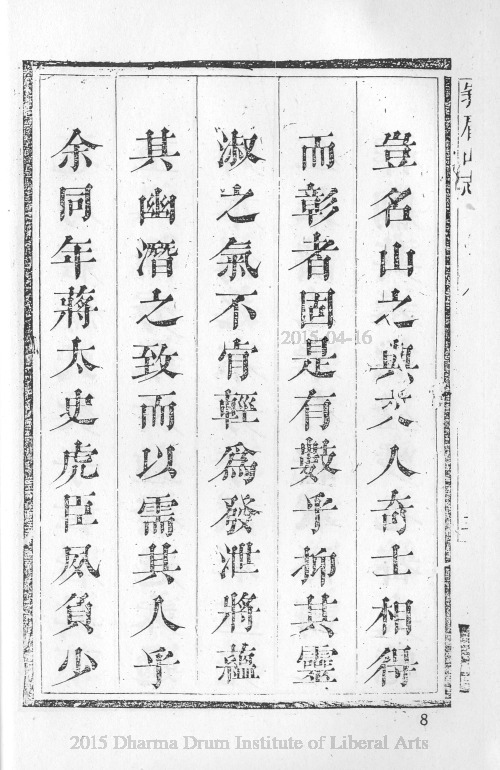 峨眉山志
豈名山之與文人奇士相得
而彰者固是有數乎抑其靈
淑之氣不肯輕爲發泄將蘊
其幽潛之致而以需其人乎
余同年蔣太史虎臣夙負少
8
2015-04-16
2015 Dharma Drum Institute of Liberal Arts